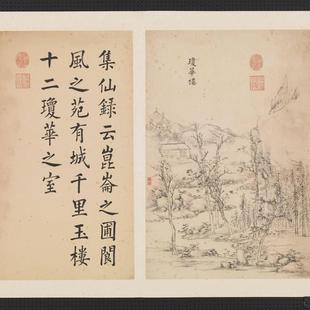 集仙録云崑崙之圃閬
風之苑有城千里玉樓
十二瓊華之室
瓊華樓